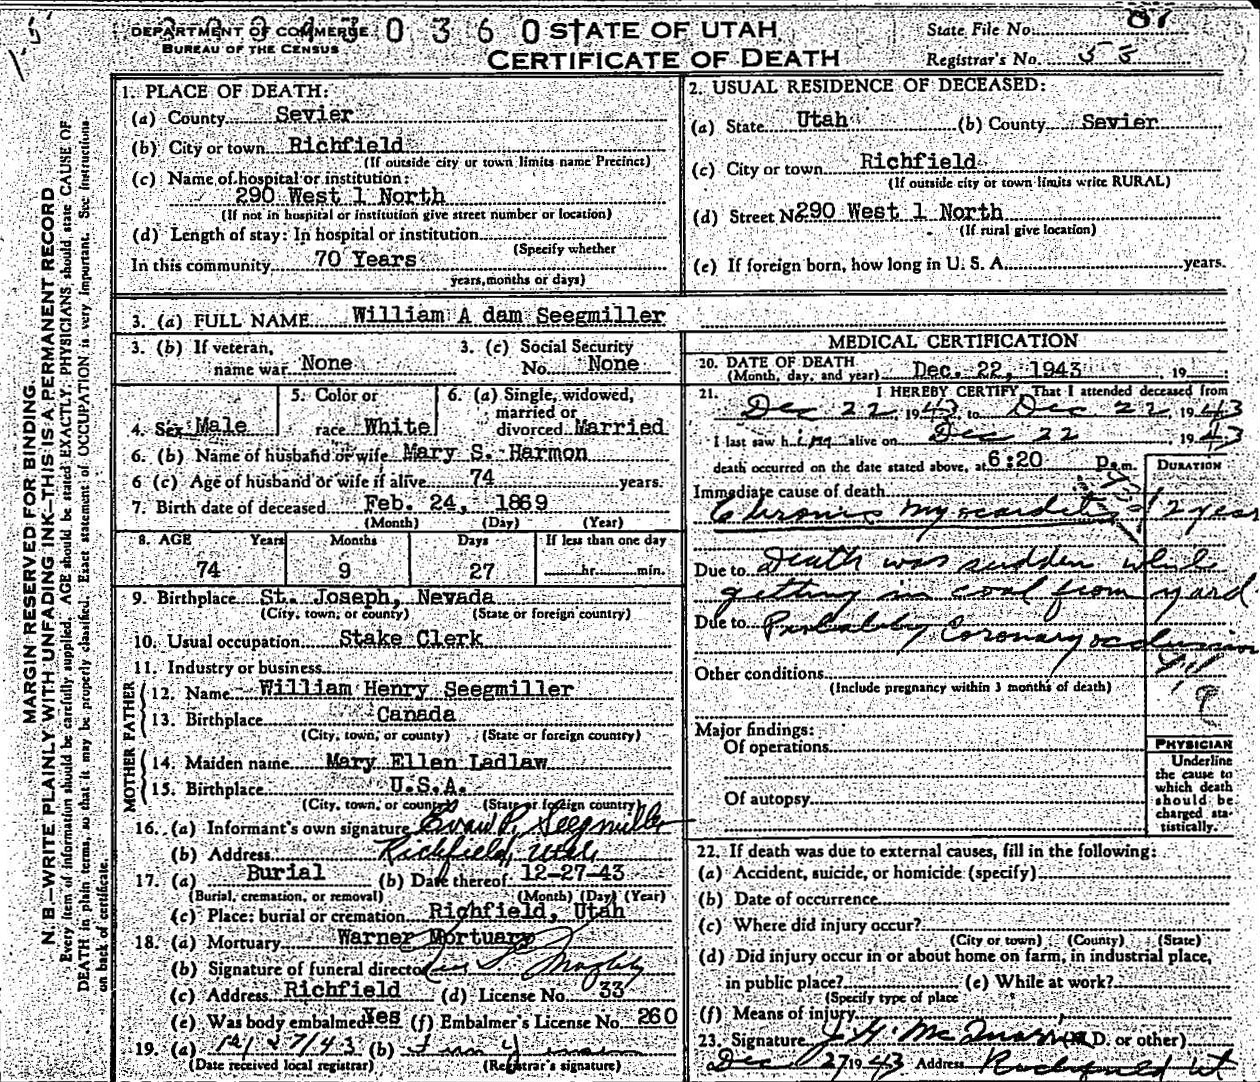 DEPARTMENT OF COMMERCE
BUREAU OF THE CENSUS
STATE OF UTAH
CERTIFICATE OF DEATH
State File No. 81
Registrar's No. 58
MARGIN RESERVED FOR BINDING
N. B.—WRITE PLAINLY WITH UNFADING INK—THIS IS A PERMANENT RECORD
Every item of information should be carefully supplied. AGE should be stated EXACTLY. PHYSICIANS should state CAUSE OF
DEATH in plain terms, so that it may be properly classified. Exact statement of OCCUPATION is very important. See instructions
on back of certificate.
1. PLACE OF DEATH:
(a) County Sevier
(b) City or town Richfield
(If outside city or town limits name Precinct)
(c) Name of hospital or institution:
290 West 1 North
(If not in hospital or institution give street number or location)
(d) Length of stay: In hospital or institution
(Specify whether
In this community 70 Years
years, months or days)
2. USUAL RESIDENCE OF DECEASED:
(a) State Utah (b) County Sevier
(c) City or town Richfield
(If outside city or town limits write RURAL)
(d) Street No. 290 West 1 North
(If rural give location)
(e) If foreign born, how long in U. S. A. years.
3. (a) FULL NAME William A dam Seegmiller
3. (b) If veteran, name war None
3. (c) Social Security No. None
4. Sex Male
5. Color or race White
6. (a) Single, widowed, married or divorced Married
6. (b) Name of husband or wife Mary S. Harmon
6 (c) Age of husband or wife if alive 74 years.
7. Birth date of deceased Feb. 24, 1869
(Month) (Day) (Year)
8. AGE Years Months Days If less than one day
74 9 27 hr. min.
9. Birthplace St. Joseph, Nevada
(City, town, or county) (State or foreign country)
10. Usual occupation Stake Clerk
11. Industry or business
FATHER
12. Name William Henry Seegmiller
13. Birthplace Canada
(City, town, or county) (State or foreign country)
MOTHER
14. Maiden name Mary Ellen Ladlaw
15. Birthplace U.S.A.
(City, town, or county) (State or foreign country)
16. (a) Informant's own signature Evan P. Seegmiller
(b) Address Richfield, Utah
17. (a) Burial (b) Date thereof 12-27-43
(Burial, cremation, or removal) (Month) (Day) (Year)
(c) Place: burial or cremation Richfield, Utah
18. (a) Mortuary Warner Mortuary
(b) Signature of funeral director
(c) Address Richfield (d) License No. 33
(e) Was body embalmed Yes (f) Embalmer's License No. 260
19. (a) 12/27/43 (b)
(Date received local registrar) (Registrar's signature)
MEDICAL CERTIFICATION
20. DATE OF DEATH
(Month, day, and year) Dec. 22, 1943 , 19
21. I HEREBY CERTIFY, That I attended deceased from
Dec 22, 1943, to Dec 22, 1943
I last saw him alive on Dec 22, 1943
death occurred on the date stated above, at 6:20 P.m.
DURATION
Immediate cause of death
Chronic Myocarditis 2 year
Due to Death was sudden while
getting in coal from yard
Due to Probably Coronary occlusion
Other conditions
(Include pregnancy within 3 months of death)
Major findings:
Of operations
Of autopsy
PHYSICIAN
Underline
the cause to
which death
should be
charged sta-
tistically.
22. If death was due to external causes, fill in the following:
(a) Accident, suicide, or homicide (specify)
(b) Date of occurrence
(c) Where did injury occur?
(City or town) (County) (State)
(d) Did injury occur in or about home on farm, in industrial place,
in public place? (e) While at work?
(Specify type of place
(f) Means of injury
23. Signature (M.D. or other)
Dec 27 1943 Address Richfield Ut